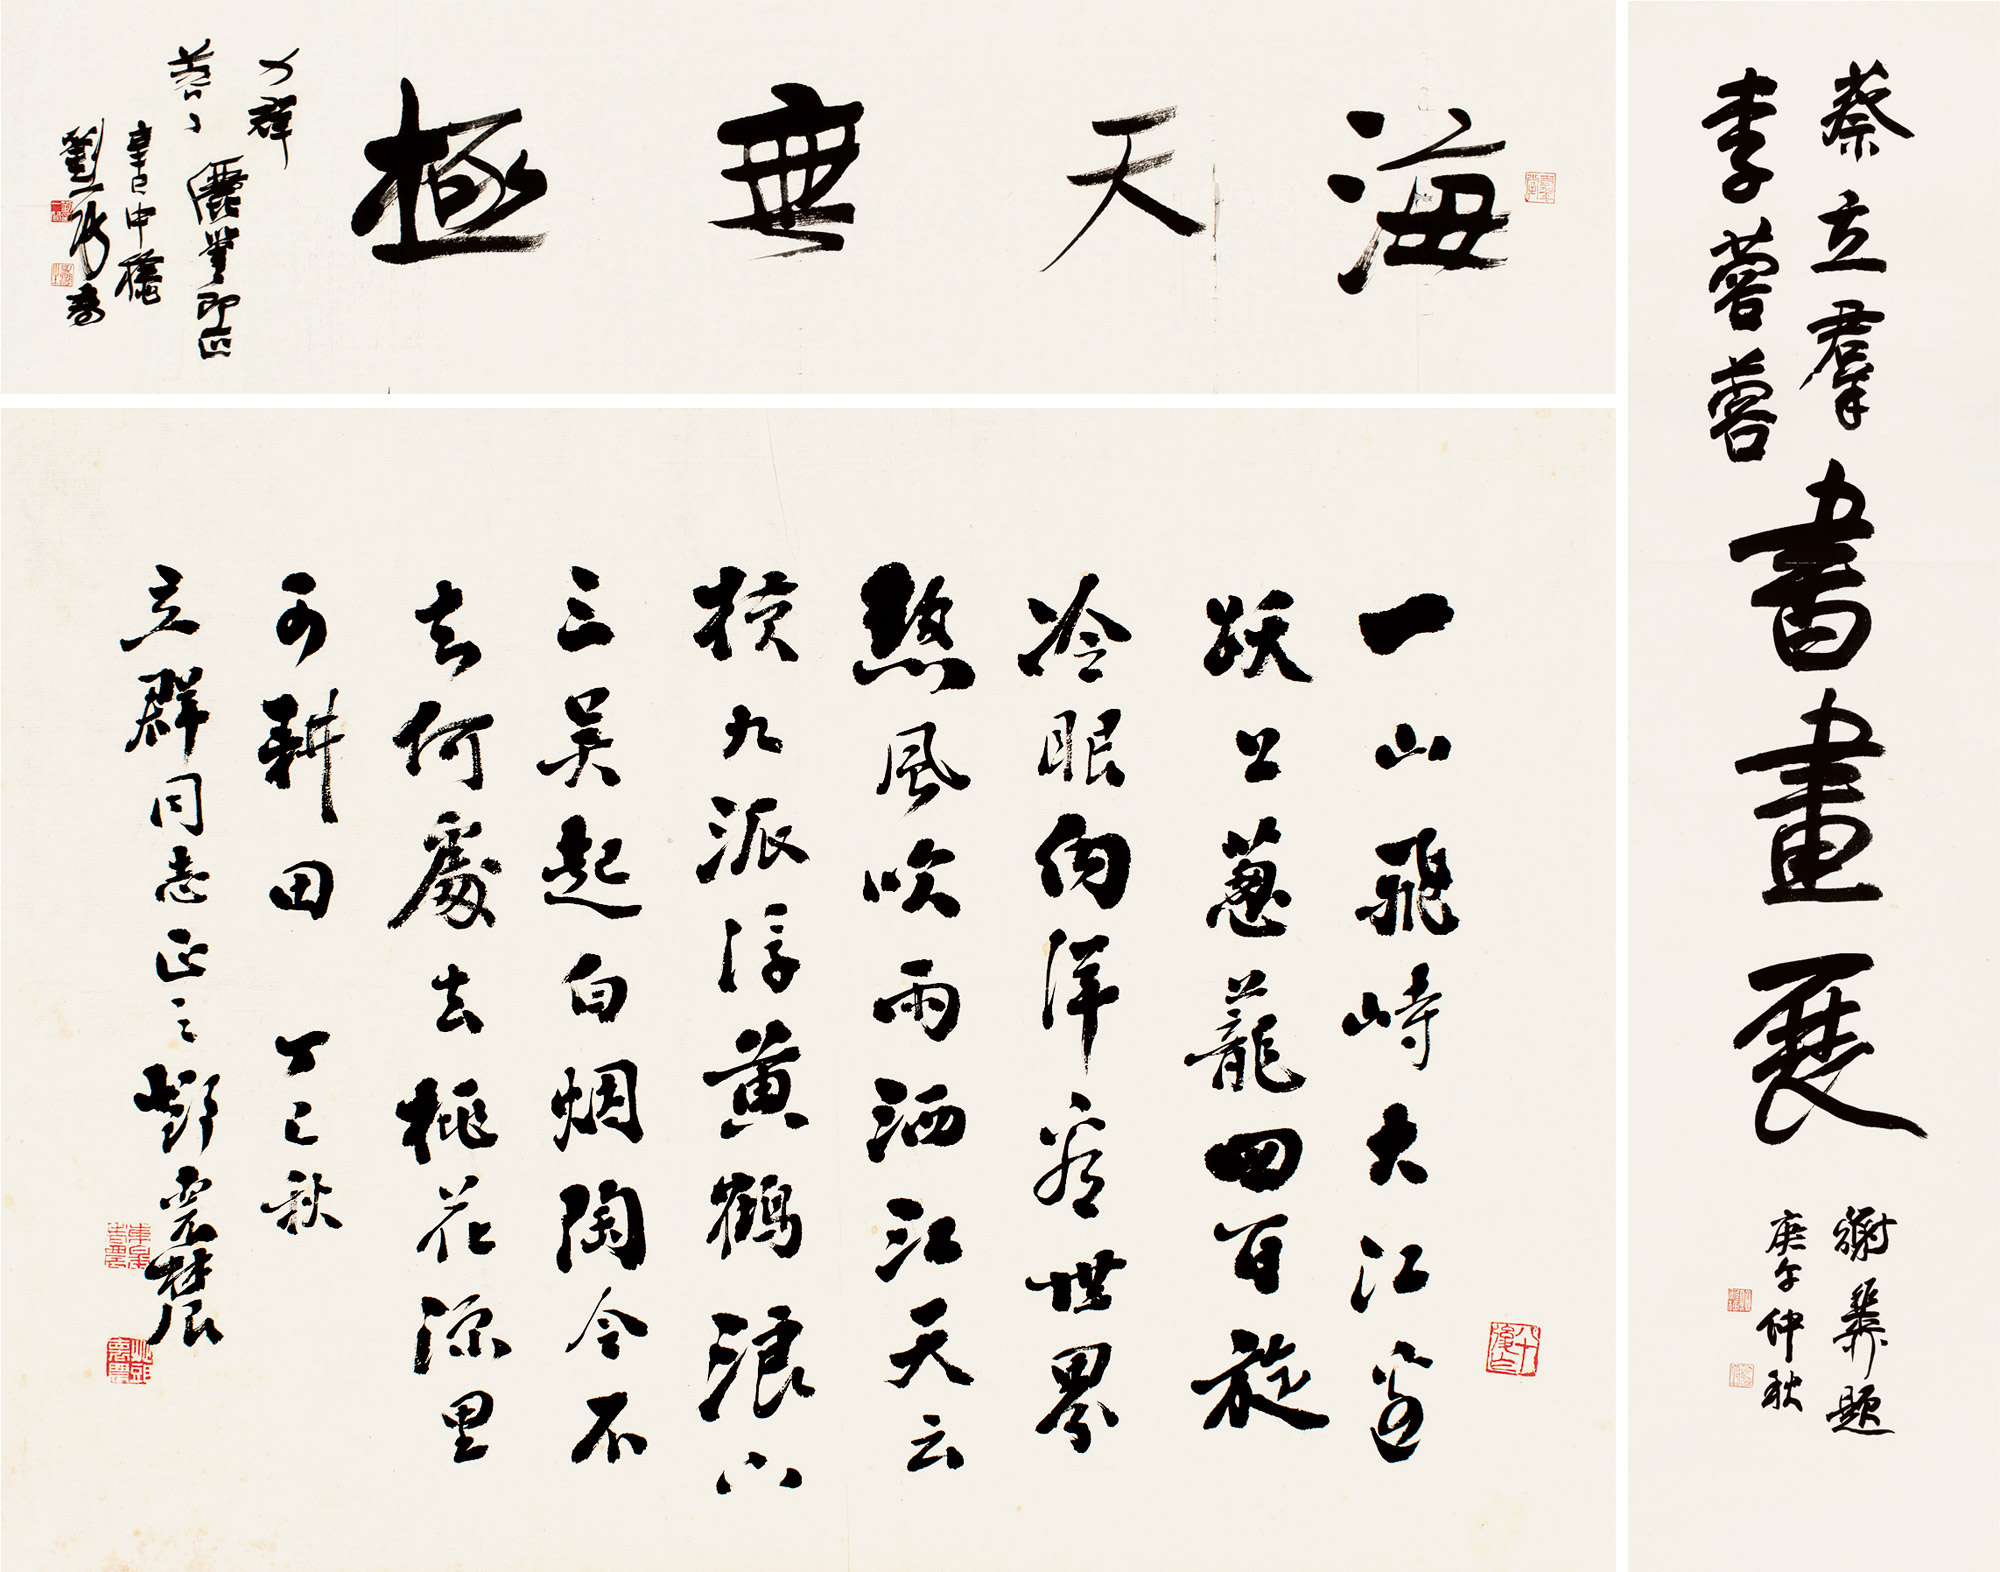 海天無極
力群
蓉蓉儷筆即正
辛巳中秋
劉一聞書
一山飛峙大江邊
躍上葱蘢四百旋
冷眼向洋看世界
熱風吹雨洒江天云
横九派浮黄鶴浪下
三吴起白烟陶令不
知何處去桃花源里
可耕田 丁巳秋
立群同志正之
蔡立羣
李蓉蓉
書畫展
謝稚題
庚午仲秋